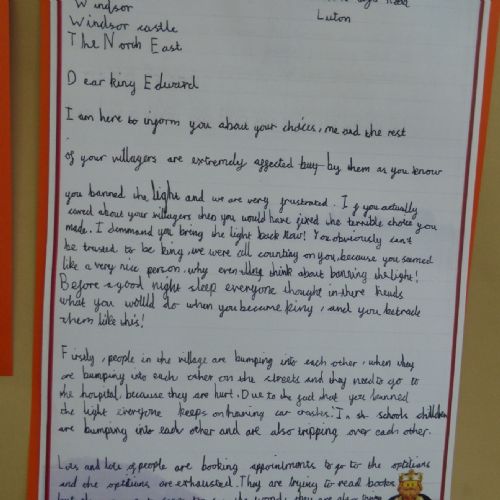 Windsor
Luton
Windsor castle
The North East
Dear king Edward
I am here to inform you about your choices, me and the rest
of your villagers are extremely affected buy by them as you know
you banned the light and we are very frustrated. If you actually
cared about your villagers then you would have fixed the terrible choice you
made. I demmand you bring the light back now! You obviously can't
be trusted to be king, we were all counting on you, because you seemed
like a very nice person. why even think about banning the light!
Before a good night sleep everyone thought in there heads
what you would do when you became king, and you betrade
them like this!
Firstly, people in the village are bumping into each other, when they
are bumping into each other on the streets and they need to go to
the hospital, because they are hurt. Due to the fact that you banned
the light everyone keeps on having car crashes. In schools children
are bumping into each other and are also tripping over each other.
Lots and lots of people are booking appointments to go to the opticians
and the opticians are exhausted. They are trying to read books